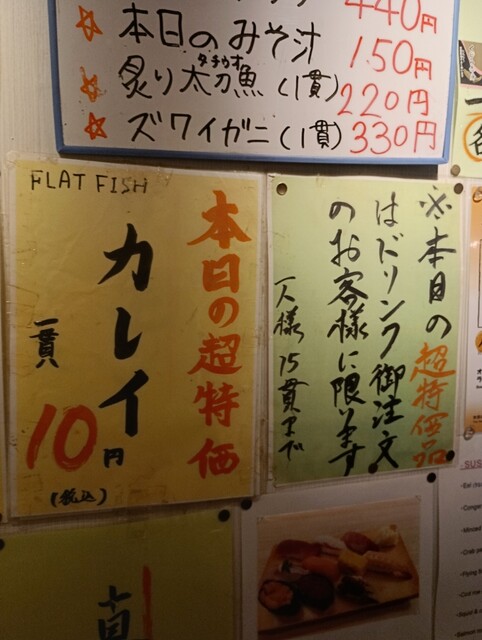 440円
本日のみそ汁 150円
タチウオ
炙り太刀魚(1貫) 220円
ズワイガニ(1貫) 330円
FLAT FISH
本日の超特価
カレイ
一貫
10円
(税込)
※本日の超特価品
はドリンク御注文
のお客様に限ります
一人様 15貫まで